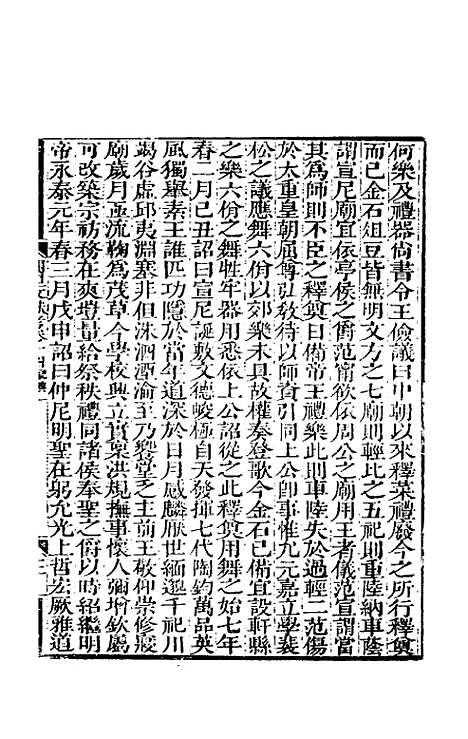 何樂及禮器尚書令王儉議曰中朝以來釋菜禮廢今之所行釋奠
而已金石俎豆皆無明文方之七廟則輕比之五祀則重陸納車蔭
謂宣尼廟宜依亭侯之爵范甯欲依周公之廟用王者儀范宣謂當
其爲師則不臣之釋奠日備帝王禮樂此則車陸失於過輕二范傷
於太重皇朝屈尊弘敎待以師資引同上公卽事惟允元嘉立學裴
松之議應舞六佾以郊樂未具故權奏登歌今金石已備宜設軒縣
之樂六佾之舞牲牢器用悉依上公詔從之此釋奠用舞之始七年
春二月己丑詔曰宣尼誕敷文德峻極自天發揮七代陶鈞萬品英
風獨舉素王誰匹功隱於當年道深於日月感麟厭世緬邈千祀川
竭谷虛丘夷淵塞非但洙泗湮淪至乃饗堂之主前王敬仰崇修寢
廟歲月亟流鞠爲茂草今學校興立實稟洪規撫事懷人彌增欽屬
可改築宗祊務在爽塏量給祭秩禮同諸侯奉聖之爵以時紹繼明
帝永泰元年春三月戊申詔曰仲尼明聖在躬允光上哲宏厥雅道